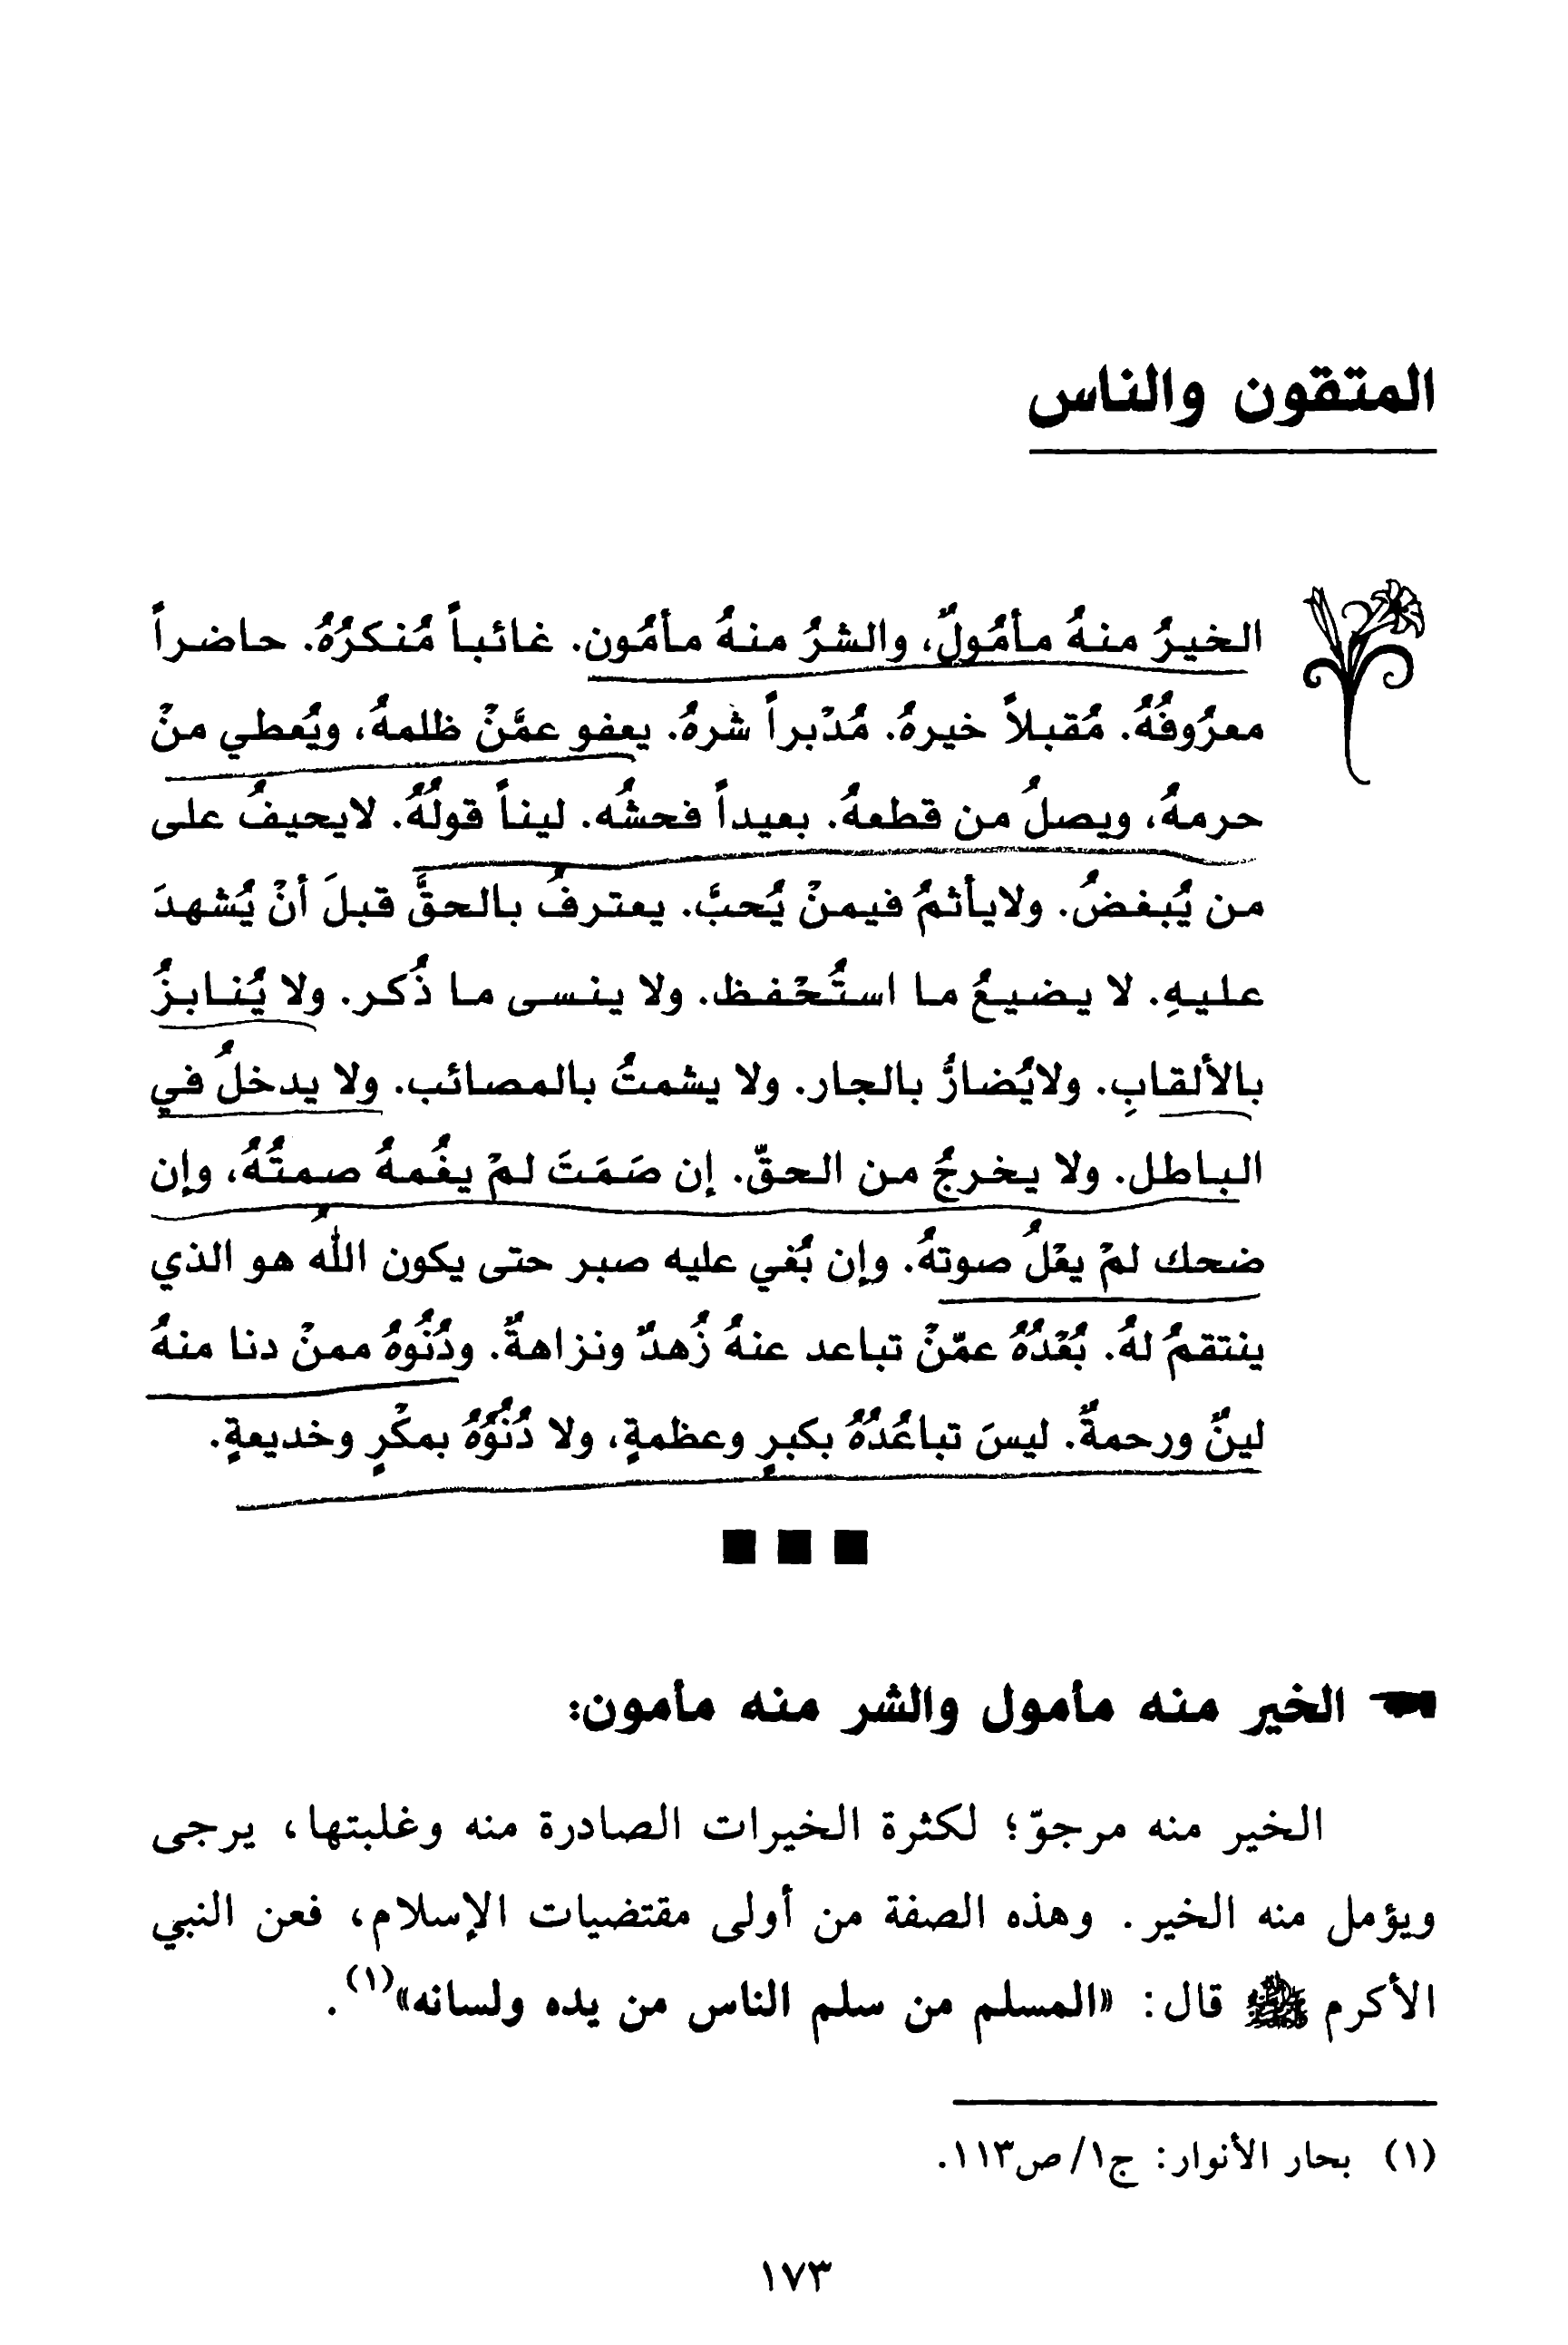 المتقون والناس
الخيرُ منهُ مأمُولٌ، والشرُ منهُ مأمُون. غائباً مُنكرُهُ. حاضراً
معرُوفُهُ. مُقبلاً خيرهُ. مُدْبراً شرهُ. يعفو عمَّنْ ظلمهُ، ويُعطي منْ
حرمهُ، ويصلُ من قطعهُ. بعيداً فحشُه. ليناً قولُهُ. لايحيفُ على
من يُبغضُ. ولايأثمُ فيمنْ يُحبَّ. يعترفُ بالحقَّ قبلَ أنْ يُشهدَ
عليهِ. لا يضيعُ ما استُحْفظ. ولا ينسى ما ذُكر. ولا يُنابزُ
بالألقابِ. ولايُضارُّ بالجار. ولا يشمتُ بالمصائب. ولا يدخلُ في
الباطل. ولا يخرجُ من الحقّ. إن صَمَتَ لمْ يغُمهُ صمتُهُ، وإن
ضحك لمْ يعْلُ صوتهُ. وإن بُغي عليه صبر حتى يكون اللهُ هو الذي
ينتقمُ لهُ. بُعْدُهُ عمّنْ تباعد عنهُ زُهدٌ ونزاهةٌ. ودُنُوهُ ممنْ دنا منهُ
لينٌ ورحمةٌ. ليسَ تباعُدُهُ بكبرٍ وعظمةٍ، ولا دُنُوّهُ بمكْرٍ وخديعةٍ.
الخير منه مأمول والشر منه مأمون:
الخير منه مرجوّ؛ لكثرة الخيرات الصادرة منه وغلبتها، يرجى
ويؤمل منه الخير. وهذه الصفة من أولى مقتضيات الإسلام، فعن النبي
الأكرم ﷺ قال: «المسلم من سلم الناس من يده ولسانه»(١).
(١) بحار الأنوار: ج١/ ص١١٣.
١٧٣